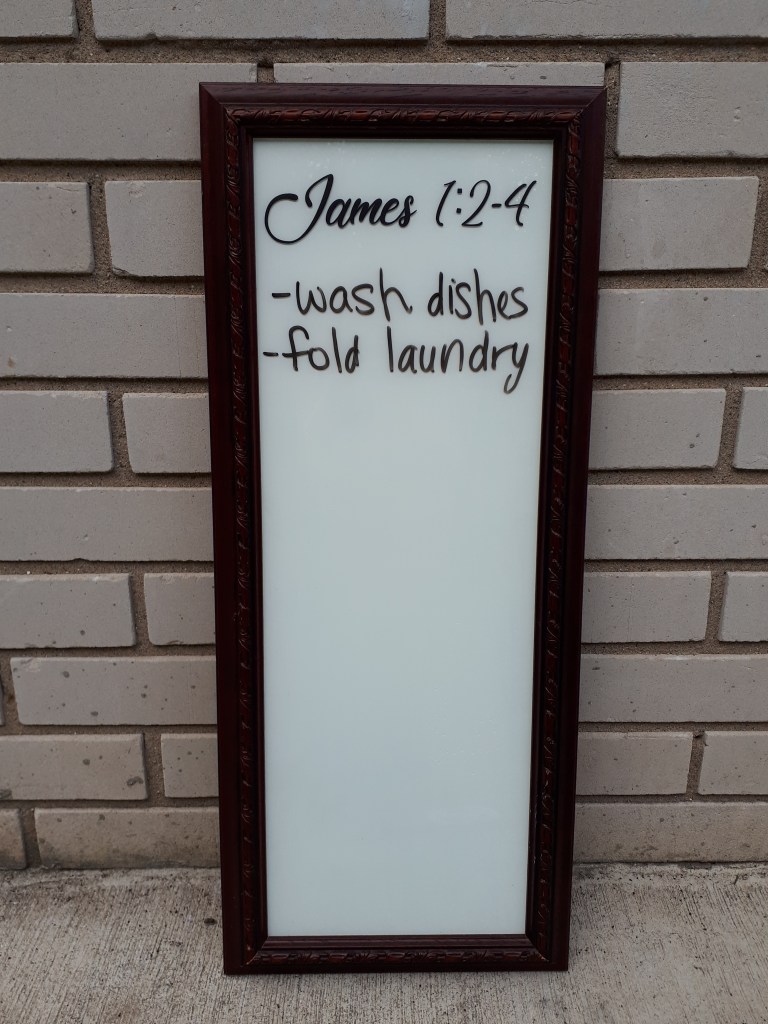 James 1:2-4
-wash dishes
-fold laundry